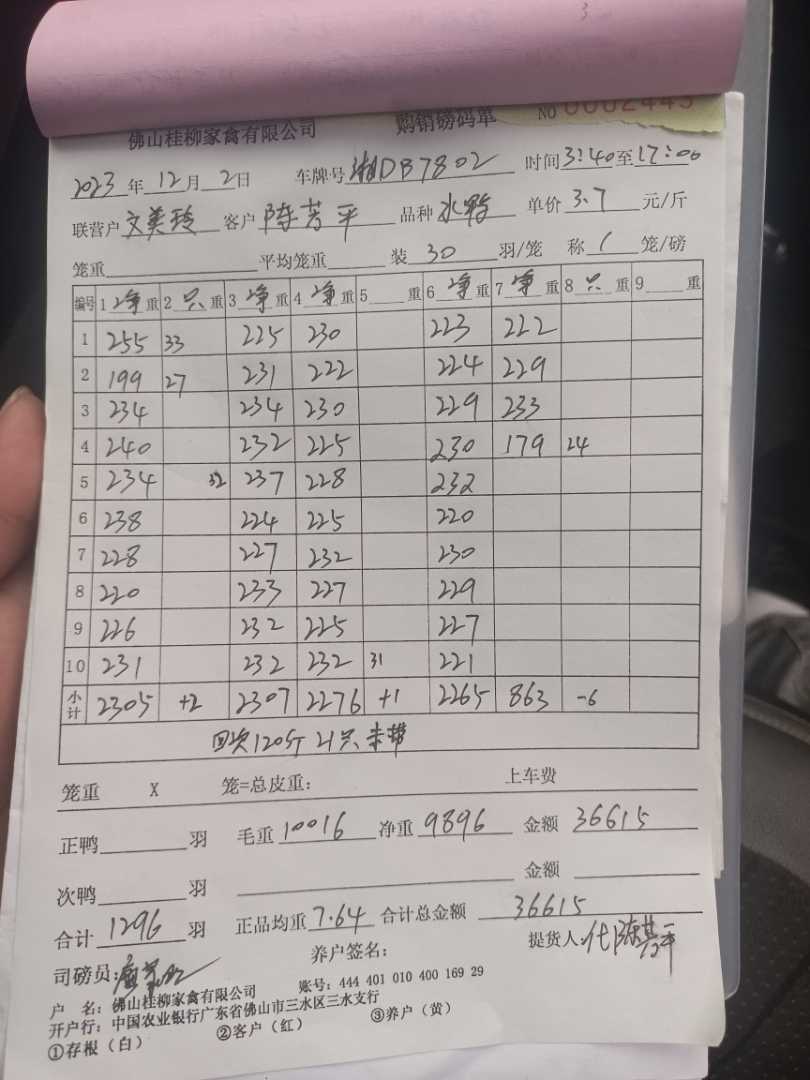 佛山桂柳家禽有限公司 购销磅码单 No 0002445
2023年12月2日 车牌号湘DB7802 时间3:40至17:00
联营户文美玲 客户陈芳平 品种水鸭 单价3.7元/斤
笼重 平均笼重 装30羽/笼 称1笼/磅
编号 1净重 2只重 3净重 4净重 5重 6净重 7净重 8只重 9重
1 255 33 225 230 223 222
2 199 27 231 222 224 229
3 234 234 230 229 233
4 240 232 225 230 179 24
5 234 32 237 228 232
6 238 224 225 220
7 228 227 232 230
8 220 233 227 229
9 226 232 225 227
10 231 232 232 31 221
小计 2305 +2 2307 2276 +1 2265 863 -6
回次120斤 21只 未带
笼重 X 笼=总皮重: 上车费
正鸭 羽 毛重10016 净重9896 金额36615
次鸭 羽 金额
合计1296羽 正品均重7.64 合计总金额36615
养户签名: 提货人:代陈芳平
司磅员:
户 名:佛山桂柳家禽有限公司 账号:444 401 010 400 169 29
开户行:中国农业银行广东省佛山市三水区三水支行
①存根(白) ②客户(红) ③养户(黄)